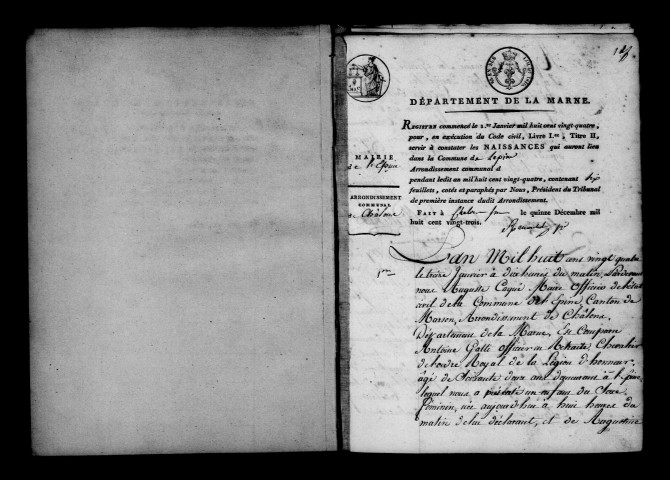 DÉPARTEMENT DE LA MARNE.
REGISTRE commencé le 1.er Janvier mil huit cent vingt-quatre,
pour, en exécution du Code civil, Livre I.er, Titre II,
servir à constater les NAISSANCES qui auront lieu
dans la Commune de Lepine
Arrondissement communal d
pendant ledit an mil huit cent vingt-quatre, contenant six
feuillets, cotés et paraphés par Nous, Président du Tribunal
de première instance dudit Arrondissement.
FAIT à le quinze Décembre mil
huit cent vingt-trois.
MAIRIE
de l'Epine
ARRONDISSEMENT
COMMUNAL
de Châlons
L'an Mil huit cens vingt quatre
le treize Janvier à dix heures du matin Pardevant
nous Auguste Caqué Maire Officier de l'état
civil de la Commune de l'Epine, Canton de
Marson, Arrondissement de Châlons,
Département de la Marne, Est Comparu
Antoine Galli officier en Retraite, Chevalier
de l'ordre Royal de la Légion d'honneur
âgé de soixante deux ans demeurant à l'Epine
lequel nous a présenté un enfant du sexe
féminin, née aujourd'hui à huit heures du
matin de lui déclarant, et de Augustine